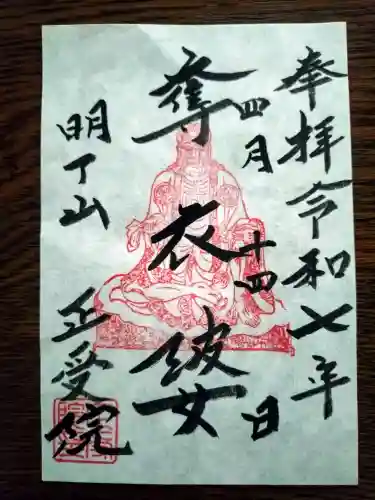 奉拝令和七年
四月十四日
奪衣婆
明了山 正受院